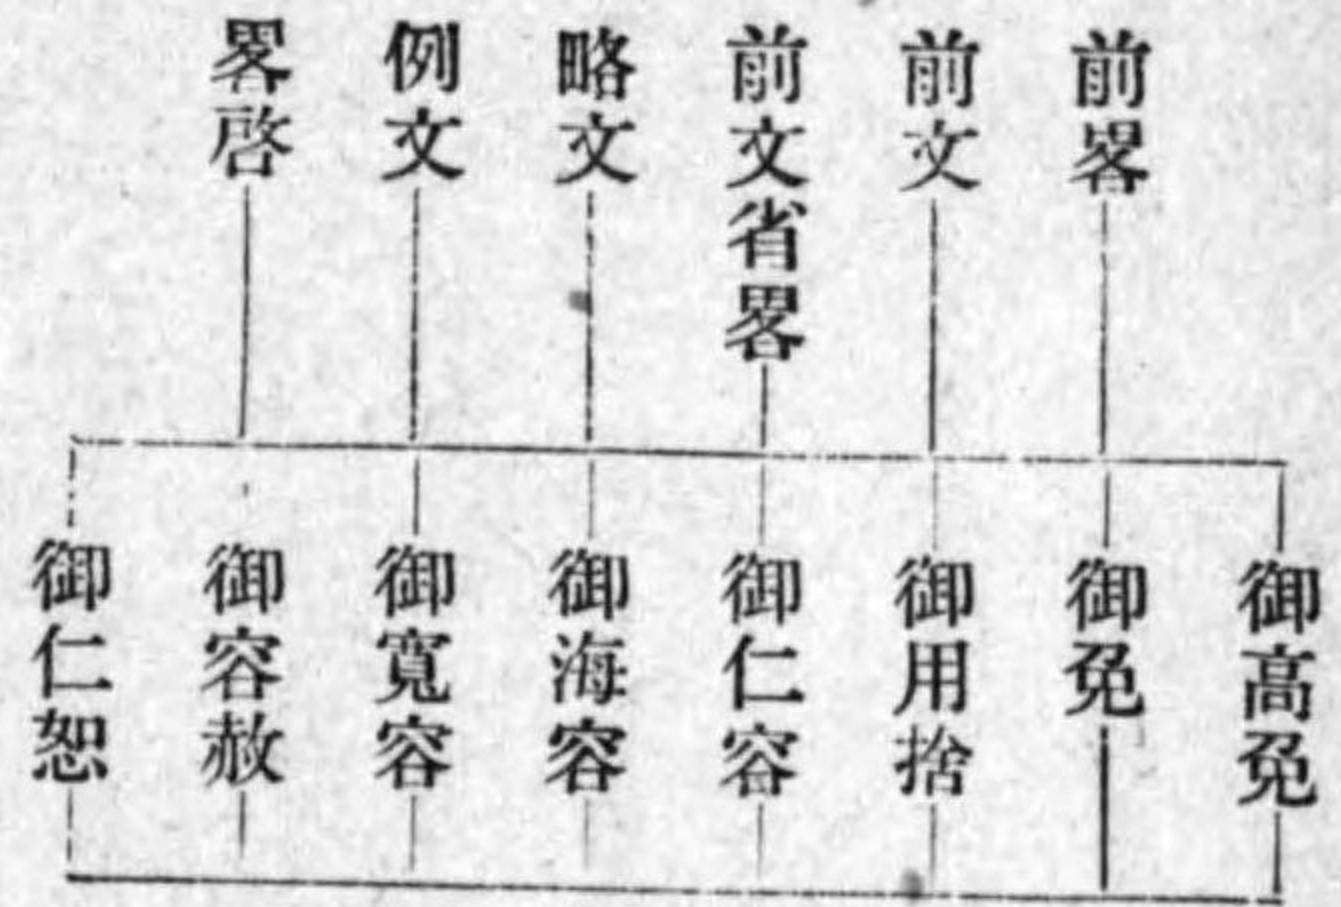 前畧
前文
前文省畧
略文
例文
畧啓
御高免
御免
御用捨
御仁容
御海容
御寬容
御容赦
御仁恕